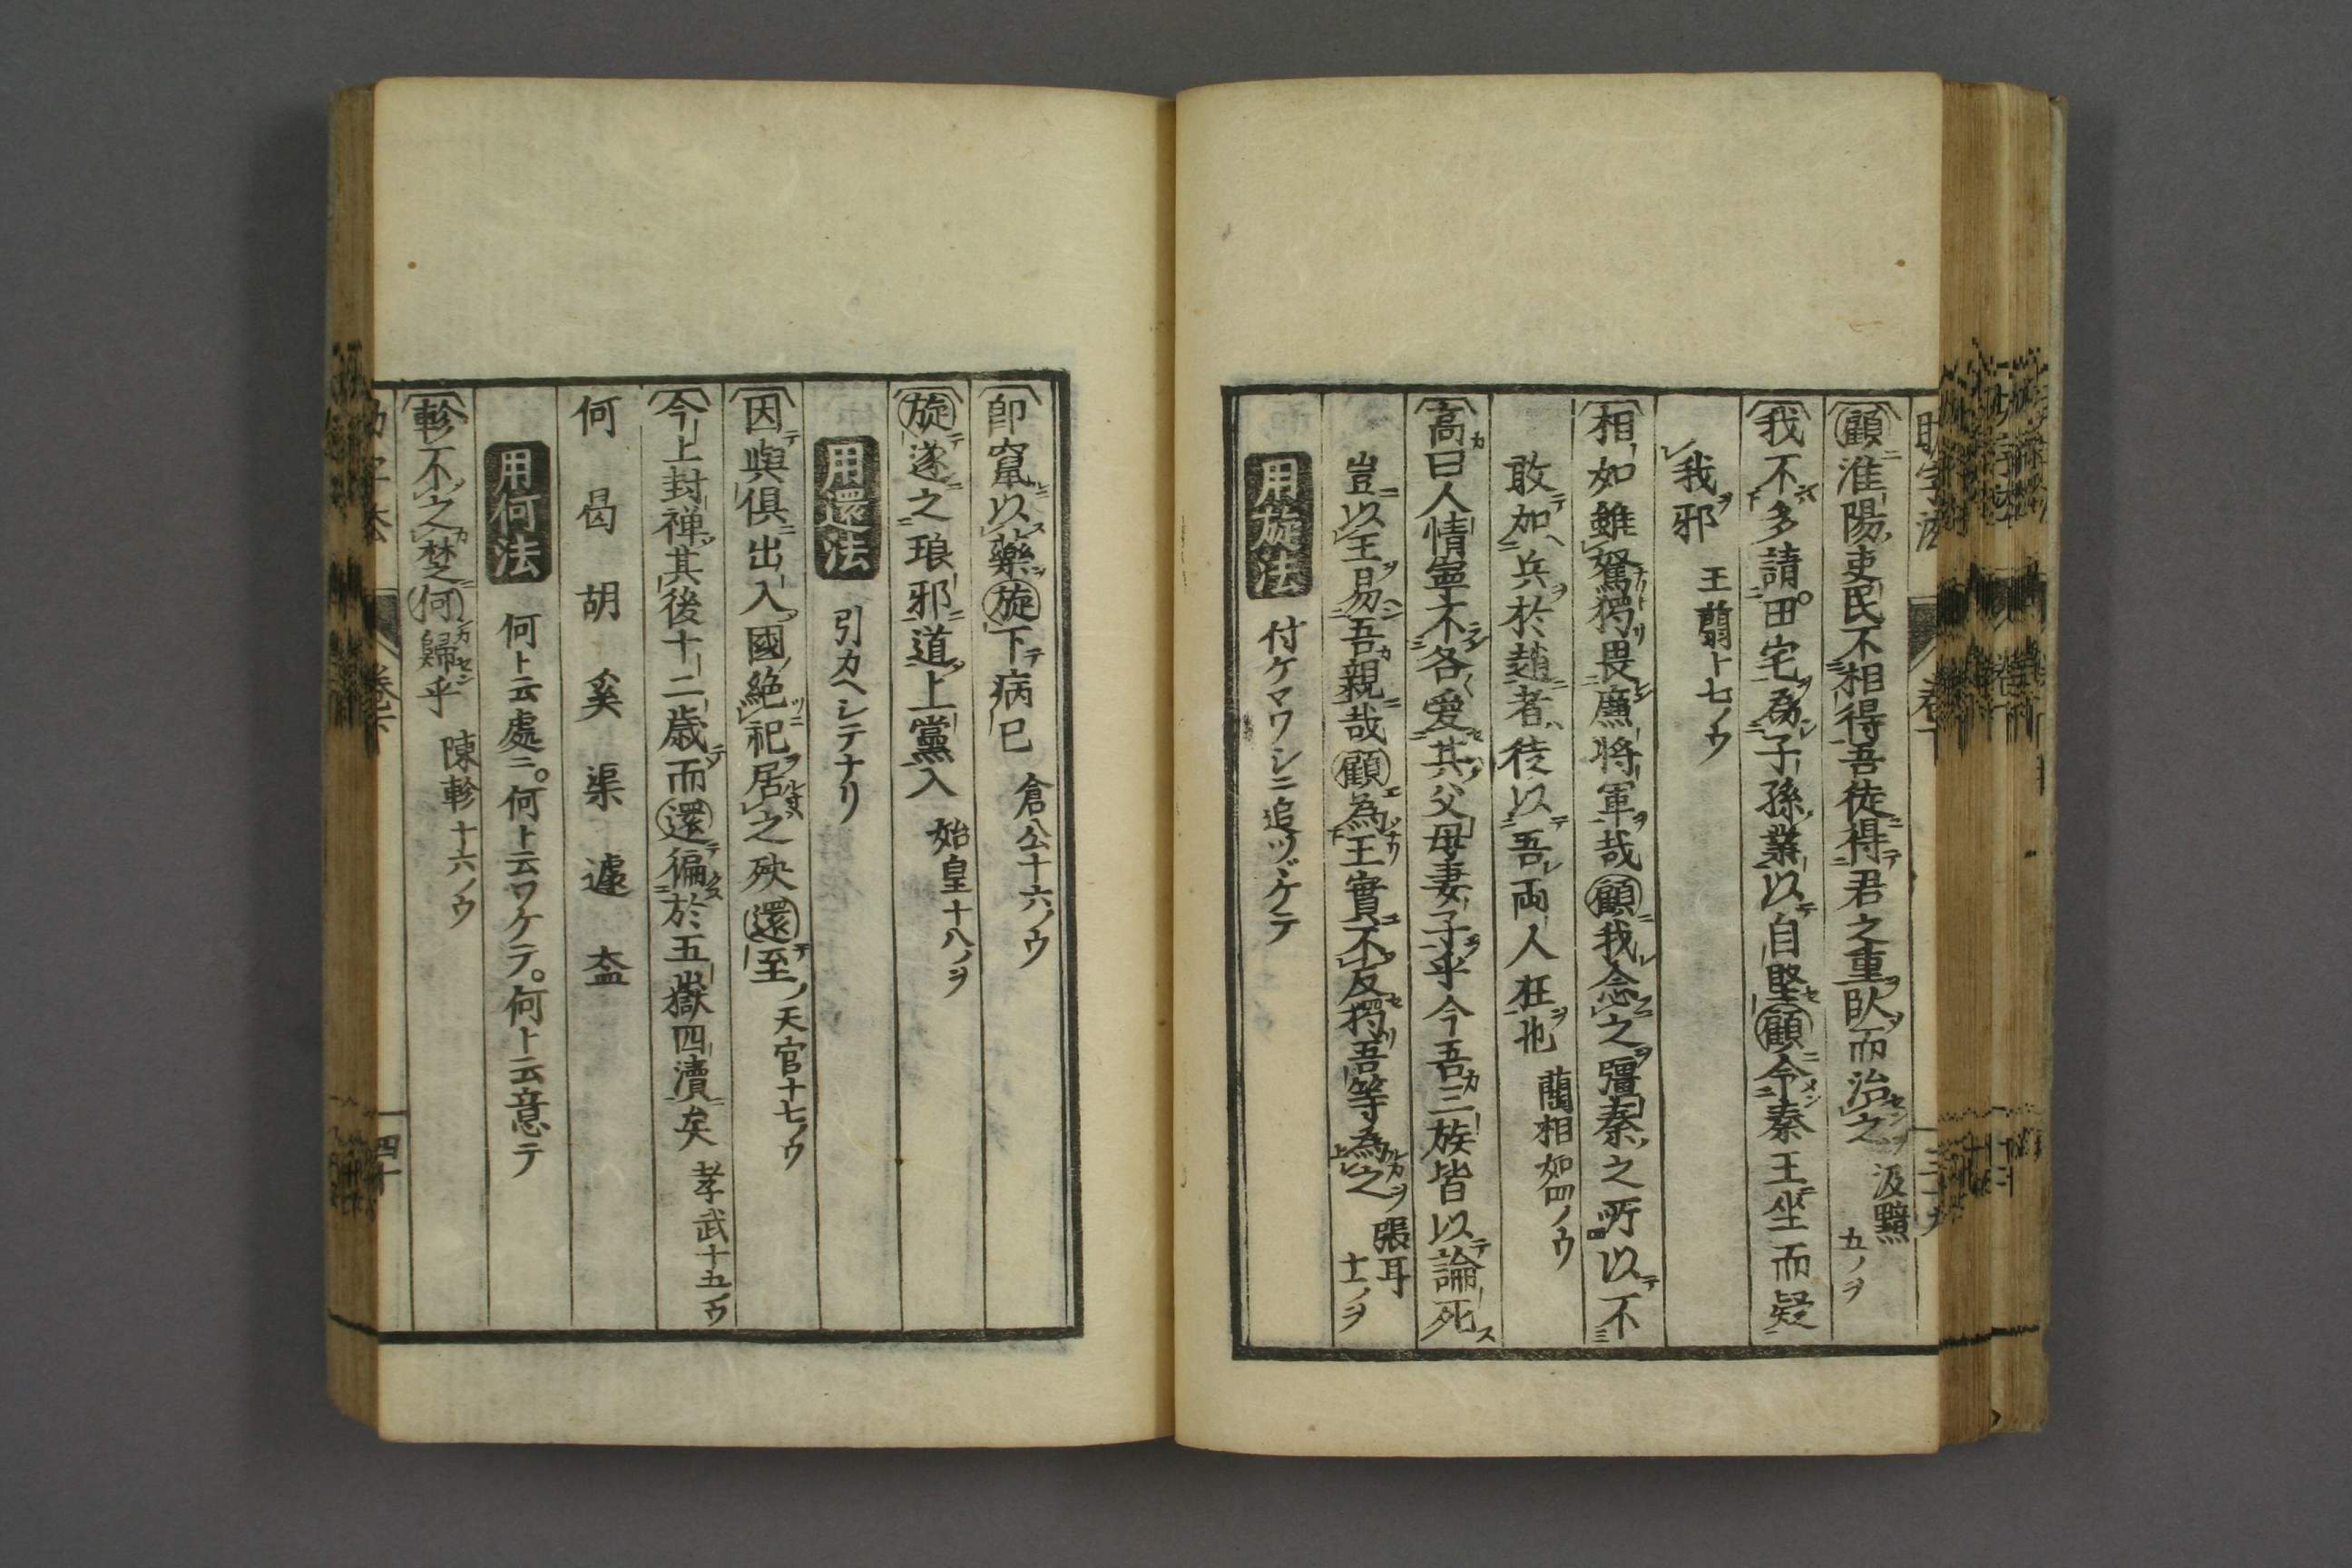 顧淮陽吏民不相得吾徒得君之重臥而治之 汲黯 五ノヲ
我不多請田宅為子孫業以自堅顧令秦王坐而疑
我邪 王翦ト七ノウ
相如雖駑獨畏廉将軍哉顧我念之彊秦之所以不
敢加兵於趙者徒以吾両人在也 藺相如四ノウ
高曰人情寧不各愛其父母妻子乎今吾三族皆以論死
豈以王易吾親哉顧為王實不反獨吾等為之 張耳 十一ノヲ
用旋法 付ケマワシニ追ツヾケテ
即竄以藥旋下病已 倉公十六ノウ
旋遂之琅邪道上黨入 始皇十八ノヲ
用還法 引カヘシテナリ
因與俱出入國絶祀居之殃還至 天官十七ノウ
今上封禅其後十二歳而還徧於五嶽四瀆矣 孝武十五ノウ
何 曷 胡 奚 渠 遽 盍
用何法 何ト云處ニ。何ト云ワケテ。何ト云意テ
軫不之楚何歸乎 陳軫十六ノウ
四十